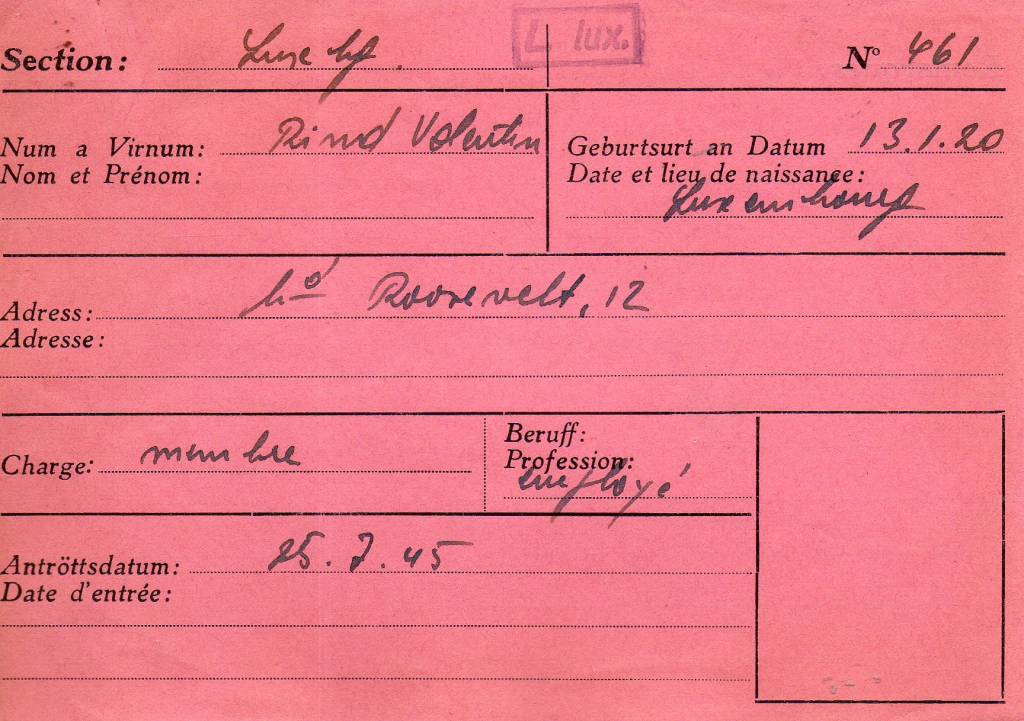 L. lux.
Section: Luxbg. N° 461
Num a Virnum: Valentin Geburtsurt an Datum 13.1.20
Nom et Prénom: Date et lieu de naissance:
Luxembourg
Adress: bd Roosevelt, 12
Adresse:
Charge: membre Beruff:
Profession:
employé
Antröttsdatum: 25.7.45
Date d'entrée: